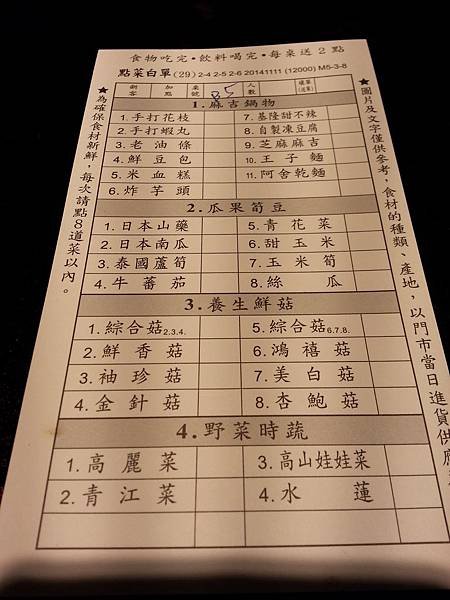 食物吃完•飲料喝完•每桌送2點
點菜白單(29) 2-4 2-5 2-6 20141111 (12000) M5-3-8
新客 加點 桌號 B5 人數
1.麻吉鍋物
1.手打花枝 7.基隆甜不辣
2.手打蝦丸 8.自製凍豆腐
3.老油條 9.芝麻麻吉
4.鮮豆包 10.王子麵
5.米血糕 11.阿舍乾麵
6.炸芋頭
2.瓜果筍豆
1.日本山藥 5.青花菜
2.日本南瓜 6.甜玉米
3.泰國蘆筍 7.玉米筍
4.牛番茄 8.絲瓜
3.養生鮮菇
1.綜合菇2.3.4. 5.綜合菇6.7.8.
2.鮮香菇 6.鴻禧菇
3.袖珍菇 7.美白菇
4.金針菇 8.杏鮑菇
4.野菜時蔬
1.高麗菜 3.高山娃娃菜
2.青江菜 4.水蓮
★為確保食材新鮮,每次請點8道菜以內。
★圖片及文字僅供參考,食材的種類、產地,以門市當日進貨供應